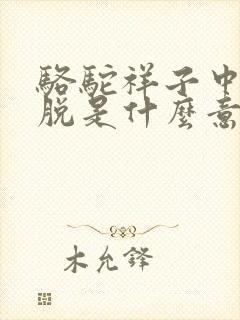 駱駝祥子中
脫是什麼意
木允鋒